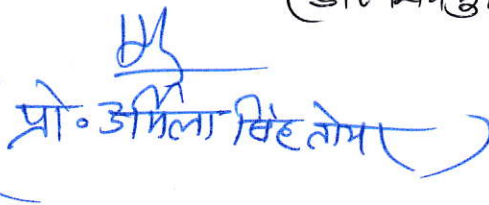 प्रो॰ उर्मिला सिंह तोमर )